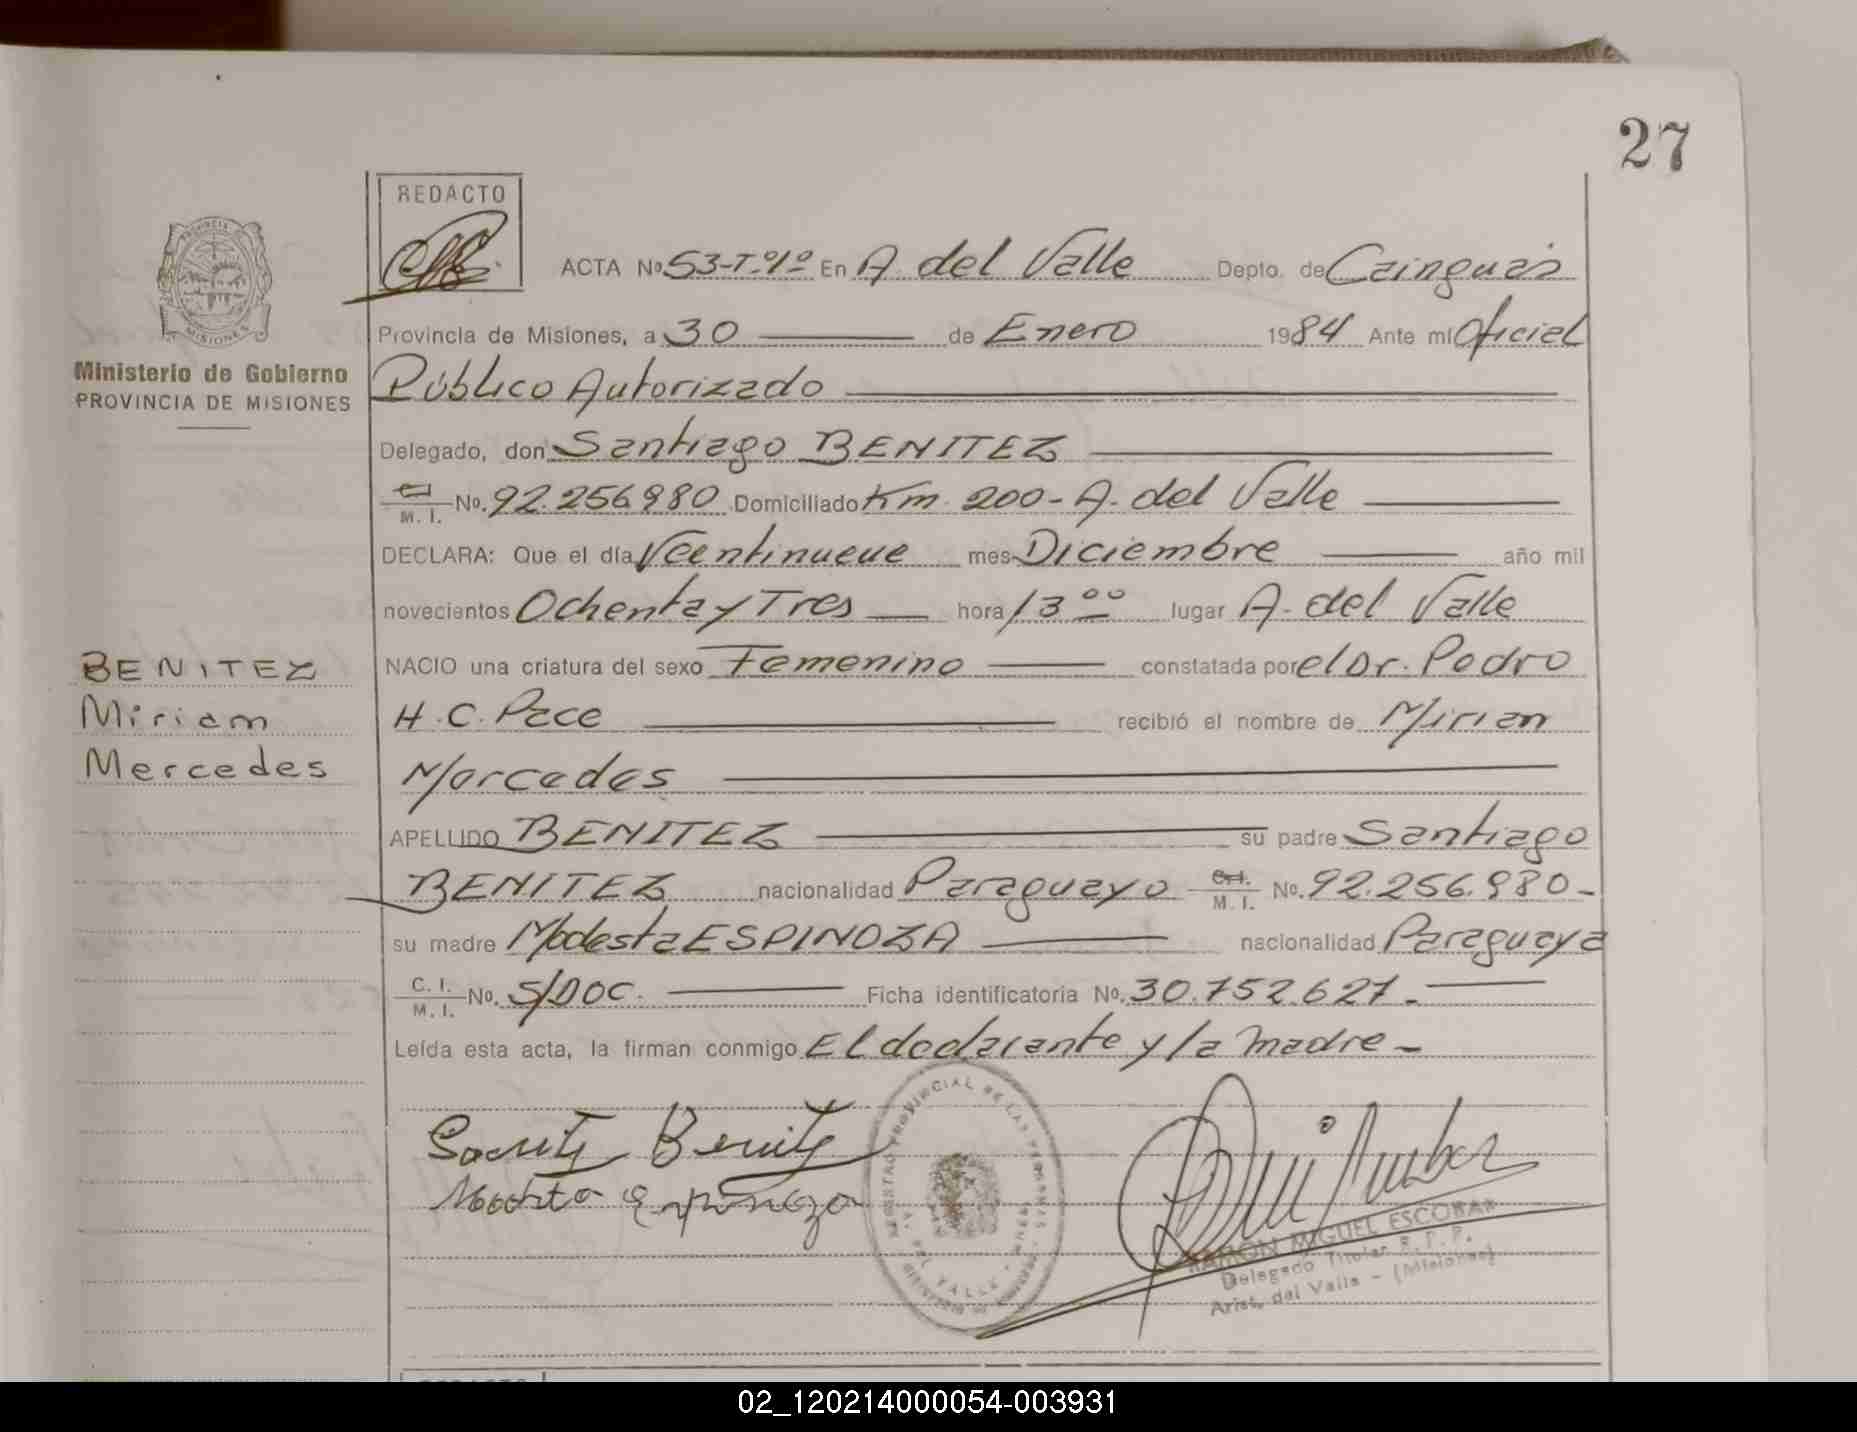 27
REDACTO
ACTA No 53-Tº1º En A. del Valle Depto. de Cainguás
Provincia de Misiones, a 30 de Enero 1984 Ante mí Oficial
Público Autorizado
Ministerio de Gobierno
PROVINCIA DE MISIONES
Delegado, don Santiago BENITEZ
C.I.
M. I. No. 92.256.980 Domiciliado Km. 200 - A. del Valle
DECLARA: Que el día Veintinueve mes Diciembre año mil
novecientos Ochenta y Tres hora 13 ºº lugar A. del Valle
BENITEZ
Miriam
Mercedes
NACIO una criatura del sexo Femenino constatada por el Dr. Pedro
H. C. Pace recibió el nombre de Mirian
Mercedes
APELLIDO BENITEZ su padre Santiago
BENITEZ nacionalidad Paraguayo C.I.
M. I. No. 92.256.980-
su madre Modesta ESPINOZA nacionalidad Paraguaya
C. I.
M. I. No. S/DOC. Ficha identificatoria No. 30.752.627.-
Leída esta acta, la firman conmigo El declarante y la madre -
PROVINCIAL DE LAS PERSONAS
MISIONES
DEL VALLE
MIGUEL ESCOBAR
Delegado Titular R. P. P.
Arist. del Valle - (Misiones)
02_120214000054-003931